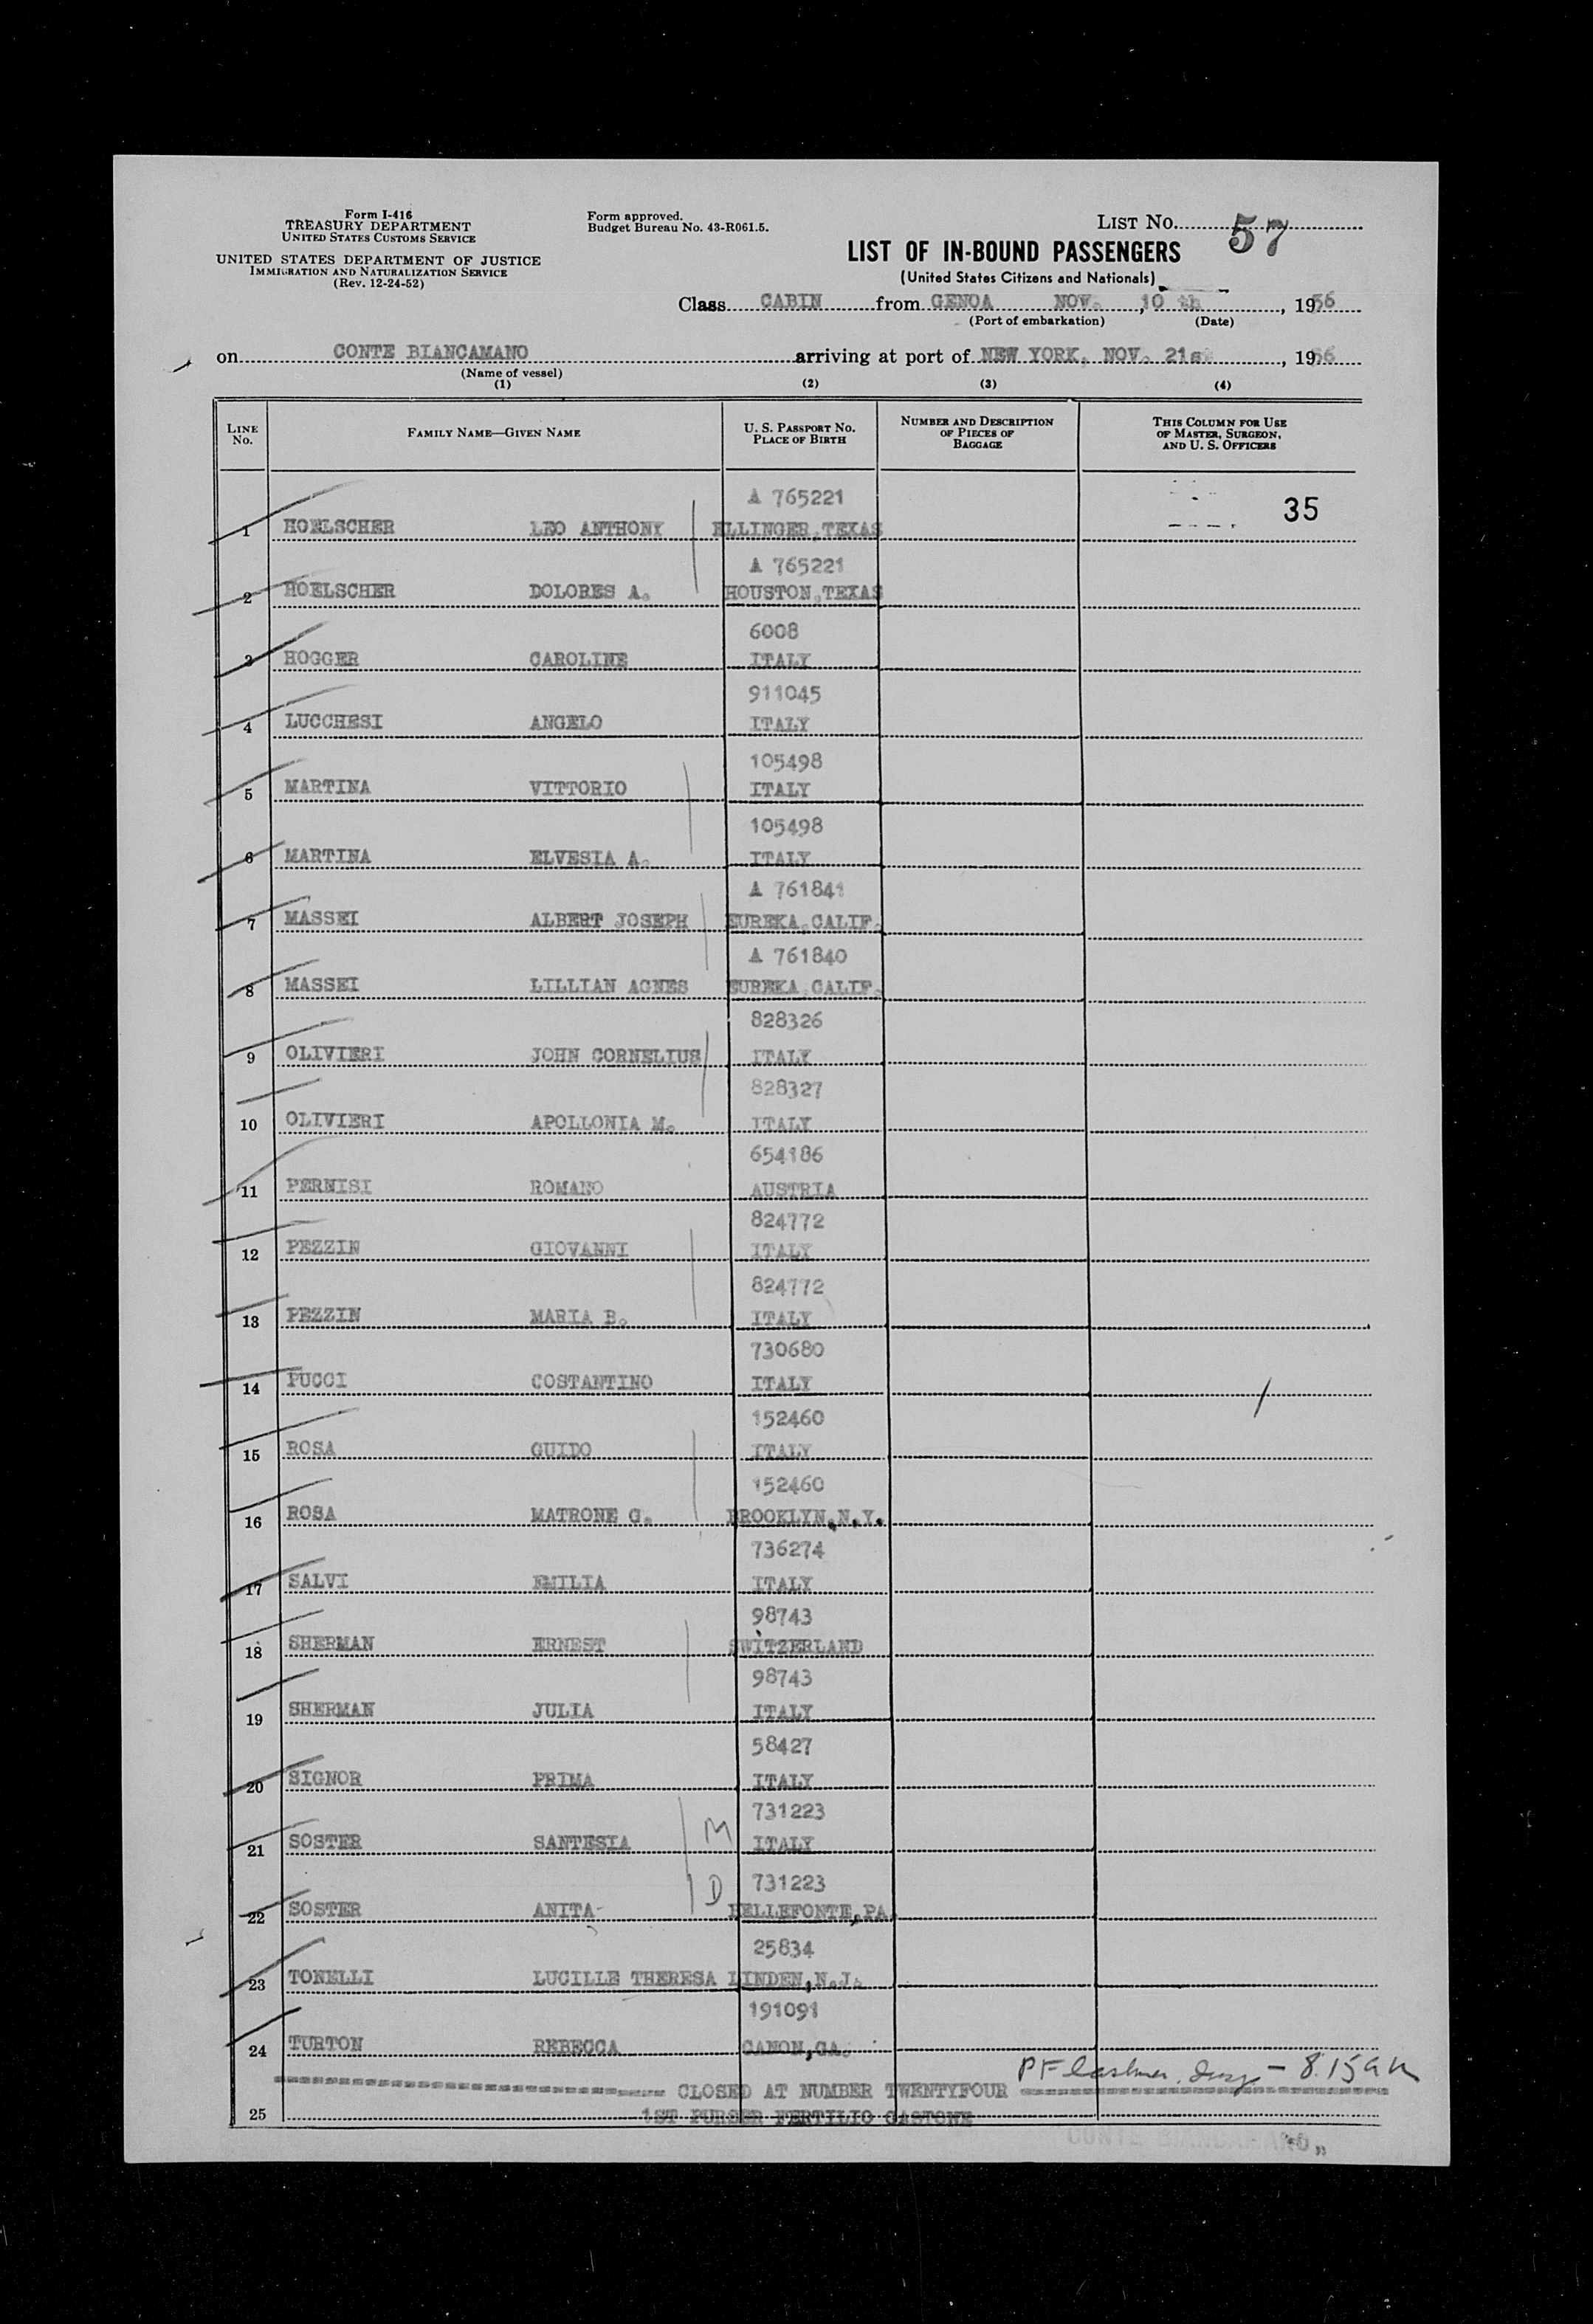 Form I-416
TREASURY DEPARTMENT
UNITED STATES CUSTOMS SERVICE
UNITED STATES DEPARTMENT OF JUSTICE
IMMIGRATION AND NATURALIZATION SERVICE
(Rev. 12-24-52)
Form approved.
Budget Bureau No. 43-R061.5.
LIST NO. 57
LIST OF IN-BOUND PASSENGERS
(United States Citizens and Nationals)
Class CABIN from GENOA NOV. 10 th, 1956
(Port of embarkation) (Date)
on CONTE BIANCAMANO arriving at port of NEW YORK, NOV. 21st, 1956
(Name of vessel)
(1) (2) (3) (4)
LINE No. FAMILY NAME—GIVEN NAME U. S. PASSPORT NO. PLACE OF BIRTH NUMBER AND DESCRIPTION OF PIECES OF BAGGAGE THIS COLUMN FOR USE OF MASTER, SURGEON, AND U. S. OFFICERS
A 765221 35
1 HOELSCHER LEO ANTHONY ELLINGER,TEXAS
A 765221
2 HOELSCHER DOLORES A. HOUSTON,TEXAS
6008
3 HOGGER CAROLINE ITALY
911045
4 LUCCHESI ANGELO ITALY
105498
5 MARTINA VITTORIO ITALY
105498
6 MARTINA ELVESIA A. ITALY
A 761841
7 MASSEI ALBERT JOSEPH EUREKA,CALIF.
A 761840
8 MASSEI LILLIAN AGNES EUREKA,CALIF.
828326
9 OLIVIERI JOHN CORNELIUS ITALY
828327
10 OLIVIERI APOLLONIA M. ITALY
654186
11 PERNISI ROMANO AUSTRIA
824772
12 PEZZIN GIOVANNI ITALY
824772
13 PEZZIN MARIA B. ITALY
730680
14 PUCCI COSTANTINO ITALY
152460
15 ROSA GUIDO ITALY
152460
16 ROSA MATRONE G. BROOKLYN,N.Y.
736274
17 SALVI EMILIA ITALY
98743
18 SHERMAN ERNEST SWITZERLAND
98743
19 SHERMAN JULIA ITALY
58427
20 SIGNOR PRIMA ITALY
731223
21 SOSTER SANTESIA M ITALY
731223
22 SOSTER ANITA D BELLEFONTE,PA.
25834
23 TONELLI LUCILLE THERESA LINDEN,N.J.
191091
24 TURTON REBECCA CANON,GA.
8.15
CLOSED AT NUMBER TWENTYFOUR
25 1ST PURSER FERTILIO GASTONE
CONTE BIANCAMANO